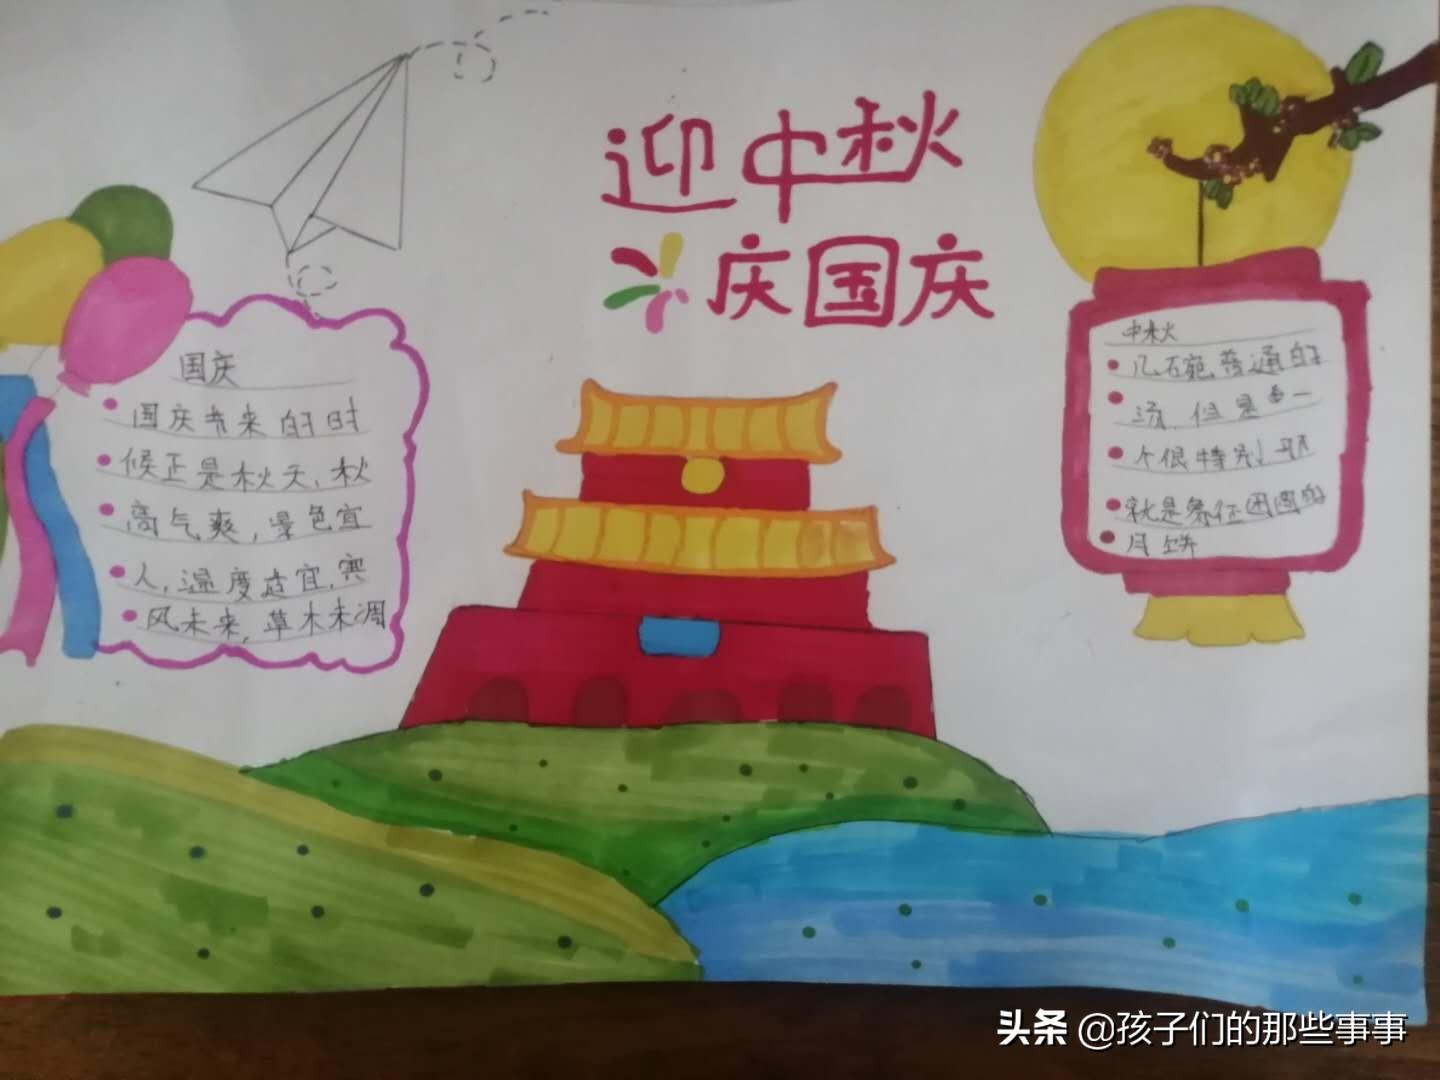 迎中秋
庆国庆
国庆
国庆节来的时
候正是秋天，秋
高气爽，景色宜
人，温度适宜，寒
风未来，草木未凋
中秋
几碗普通的
汤，但是有一
个很特别，那
就是象征团圆的
月饼
头条 @孩子们的那些事事